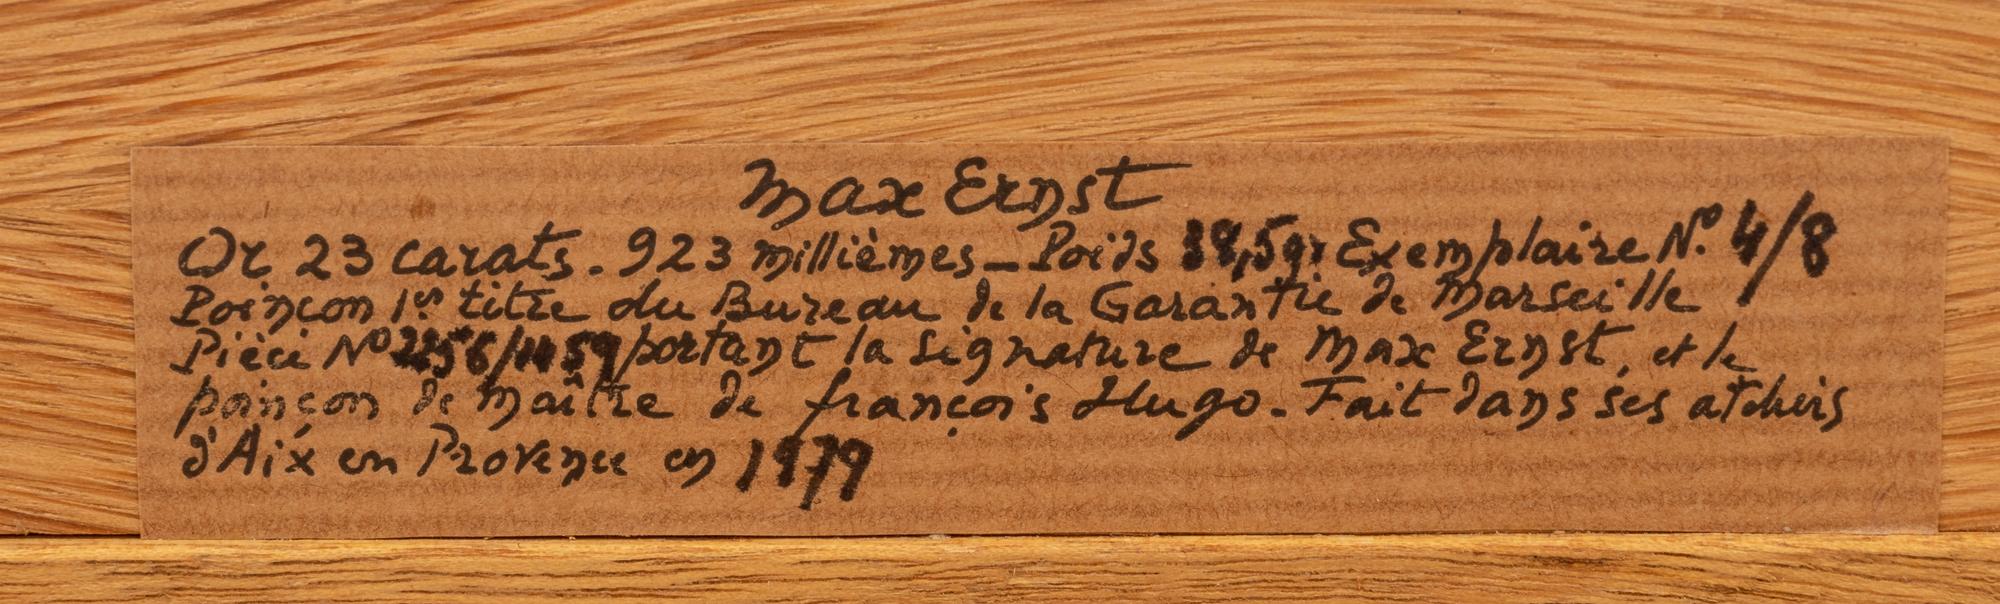 Max Ernst
Or 23 carats. 923 millièmes _ Poids 38,5gr Exemplaire N° 4/8
Poinçon 1er titre du Bureau de la Garantie de Marseille
Pièce N° portant la signature de Max Ernst, et le
poinçon de maître de françois Hugo. Fait dans ses ateliers
d'Aix en Provence en 1979